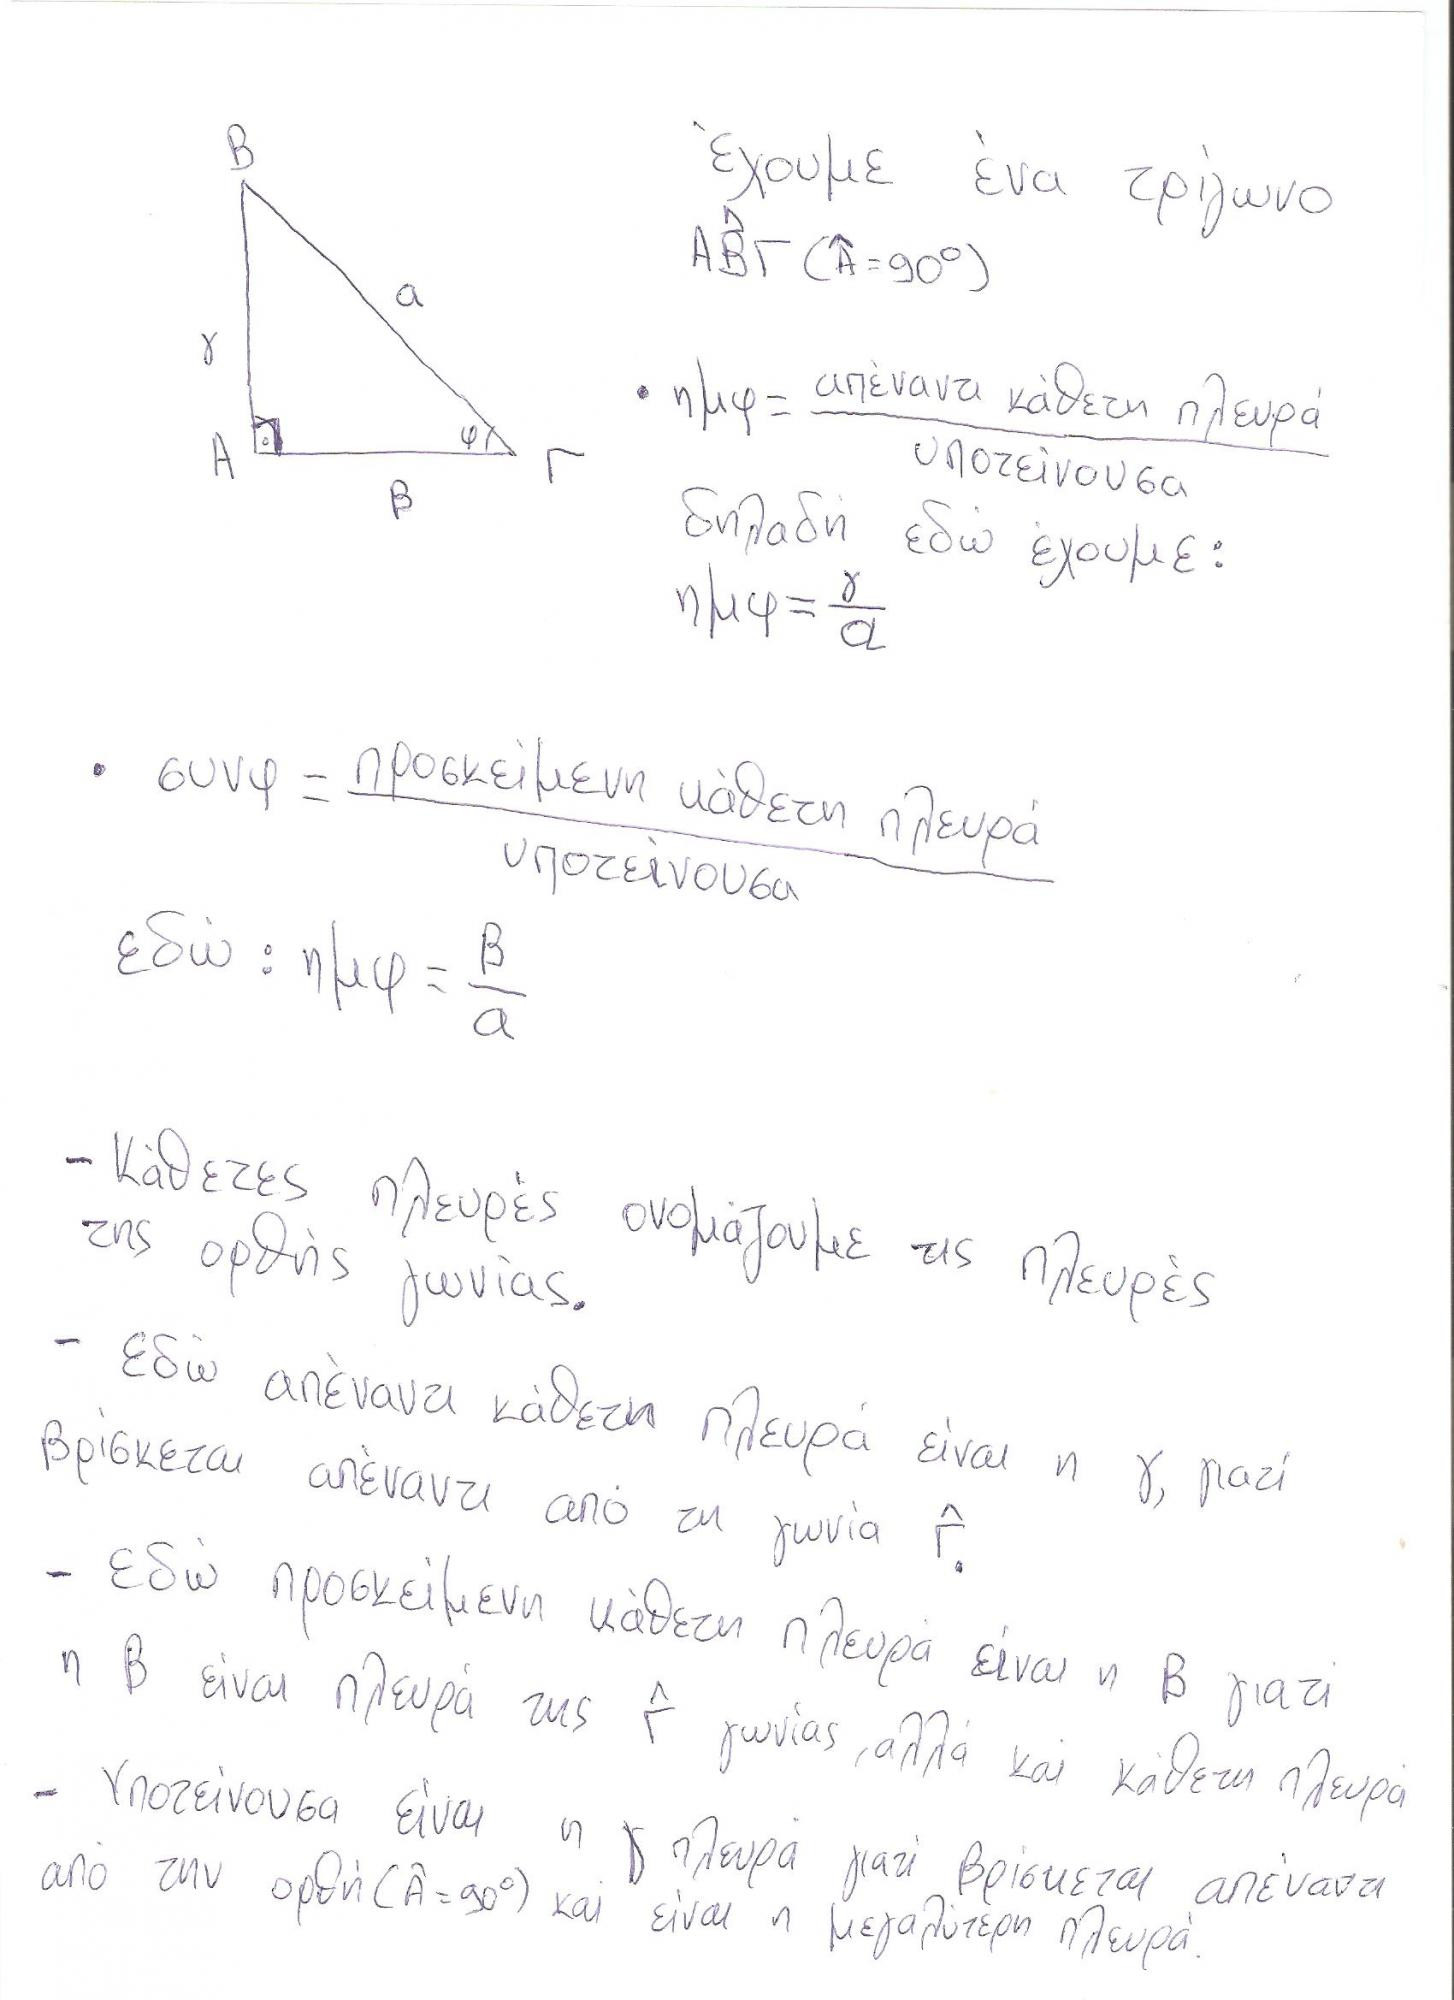 B
a
γ
A
φ
Γ
β
έχουμε ένα τρίγωνο
ΑΒ̂Γ (Â=90°)
• ημφ = απέναντι κάθετη πλευρά
υποτείνουσα
δηλαδή εδώ έχουμε:
ημφ = γ/α
• συνφ = προσκείμενη κάθετη πλευρά
υποτείνουσα
εδώ: ημφ = β/α
- Κάθετες πλευρές ονομάζουμε τις πλευρές
της ορθής γωνίας.
- Εδώ απέναντι κάθετη πλευρά είναι η γ, γιατί
βρίσκεται απέναντι από τη γωνία Γ̂.
- Εδώ προσκείμενη κάθετη πλευρά είναι η β γιατί
η β είναι πλευρά της Γ̂ γωνίας, αλλά και κάθετη πλευρά
- Υποτείνουσα είναι η γ πλευρά γιατί βρίσκεται απέναντι
από την ορθή (Â=90°) και είναι η μεγαλύτερη πλευρά.